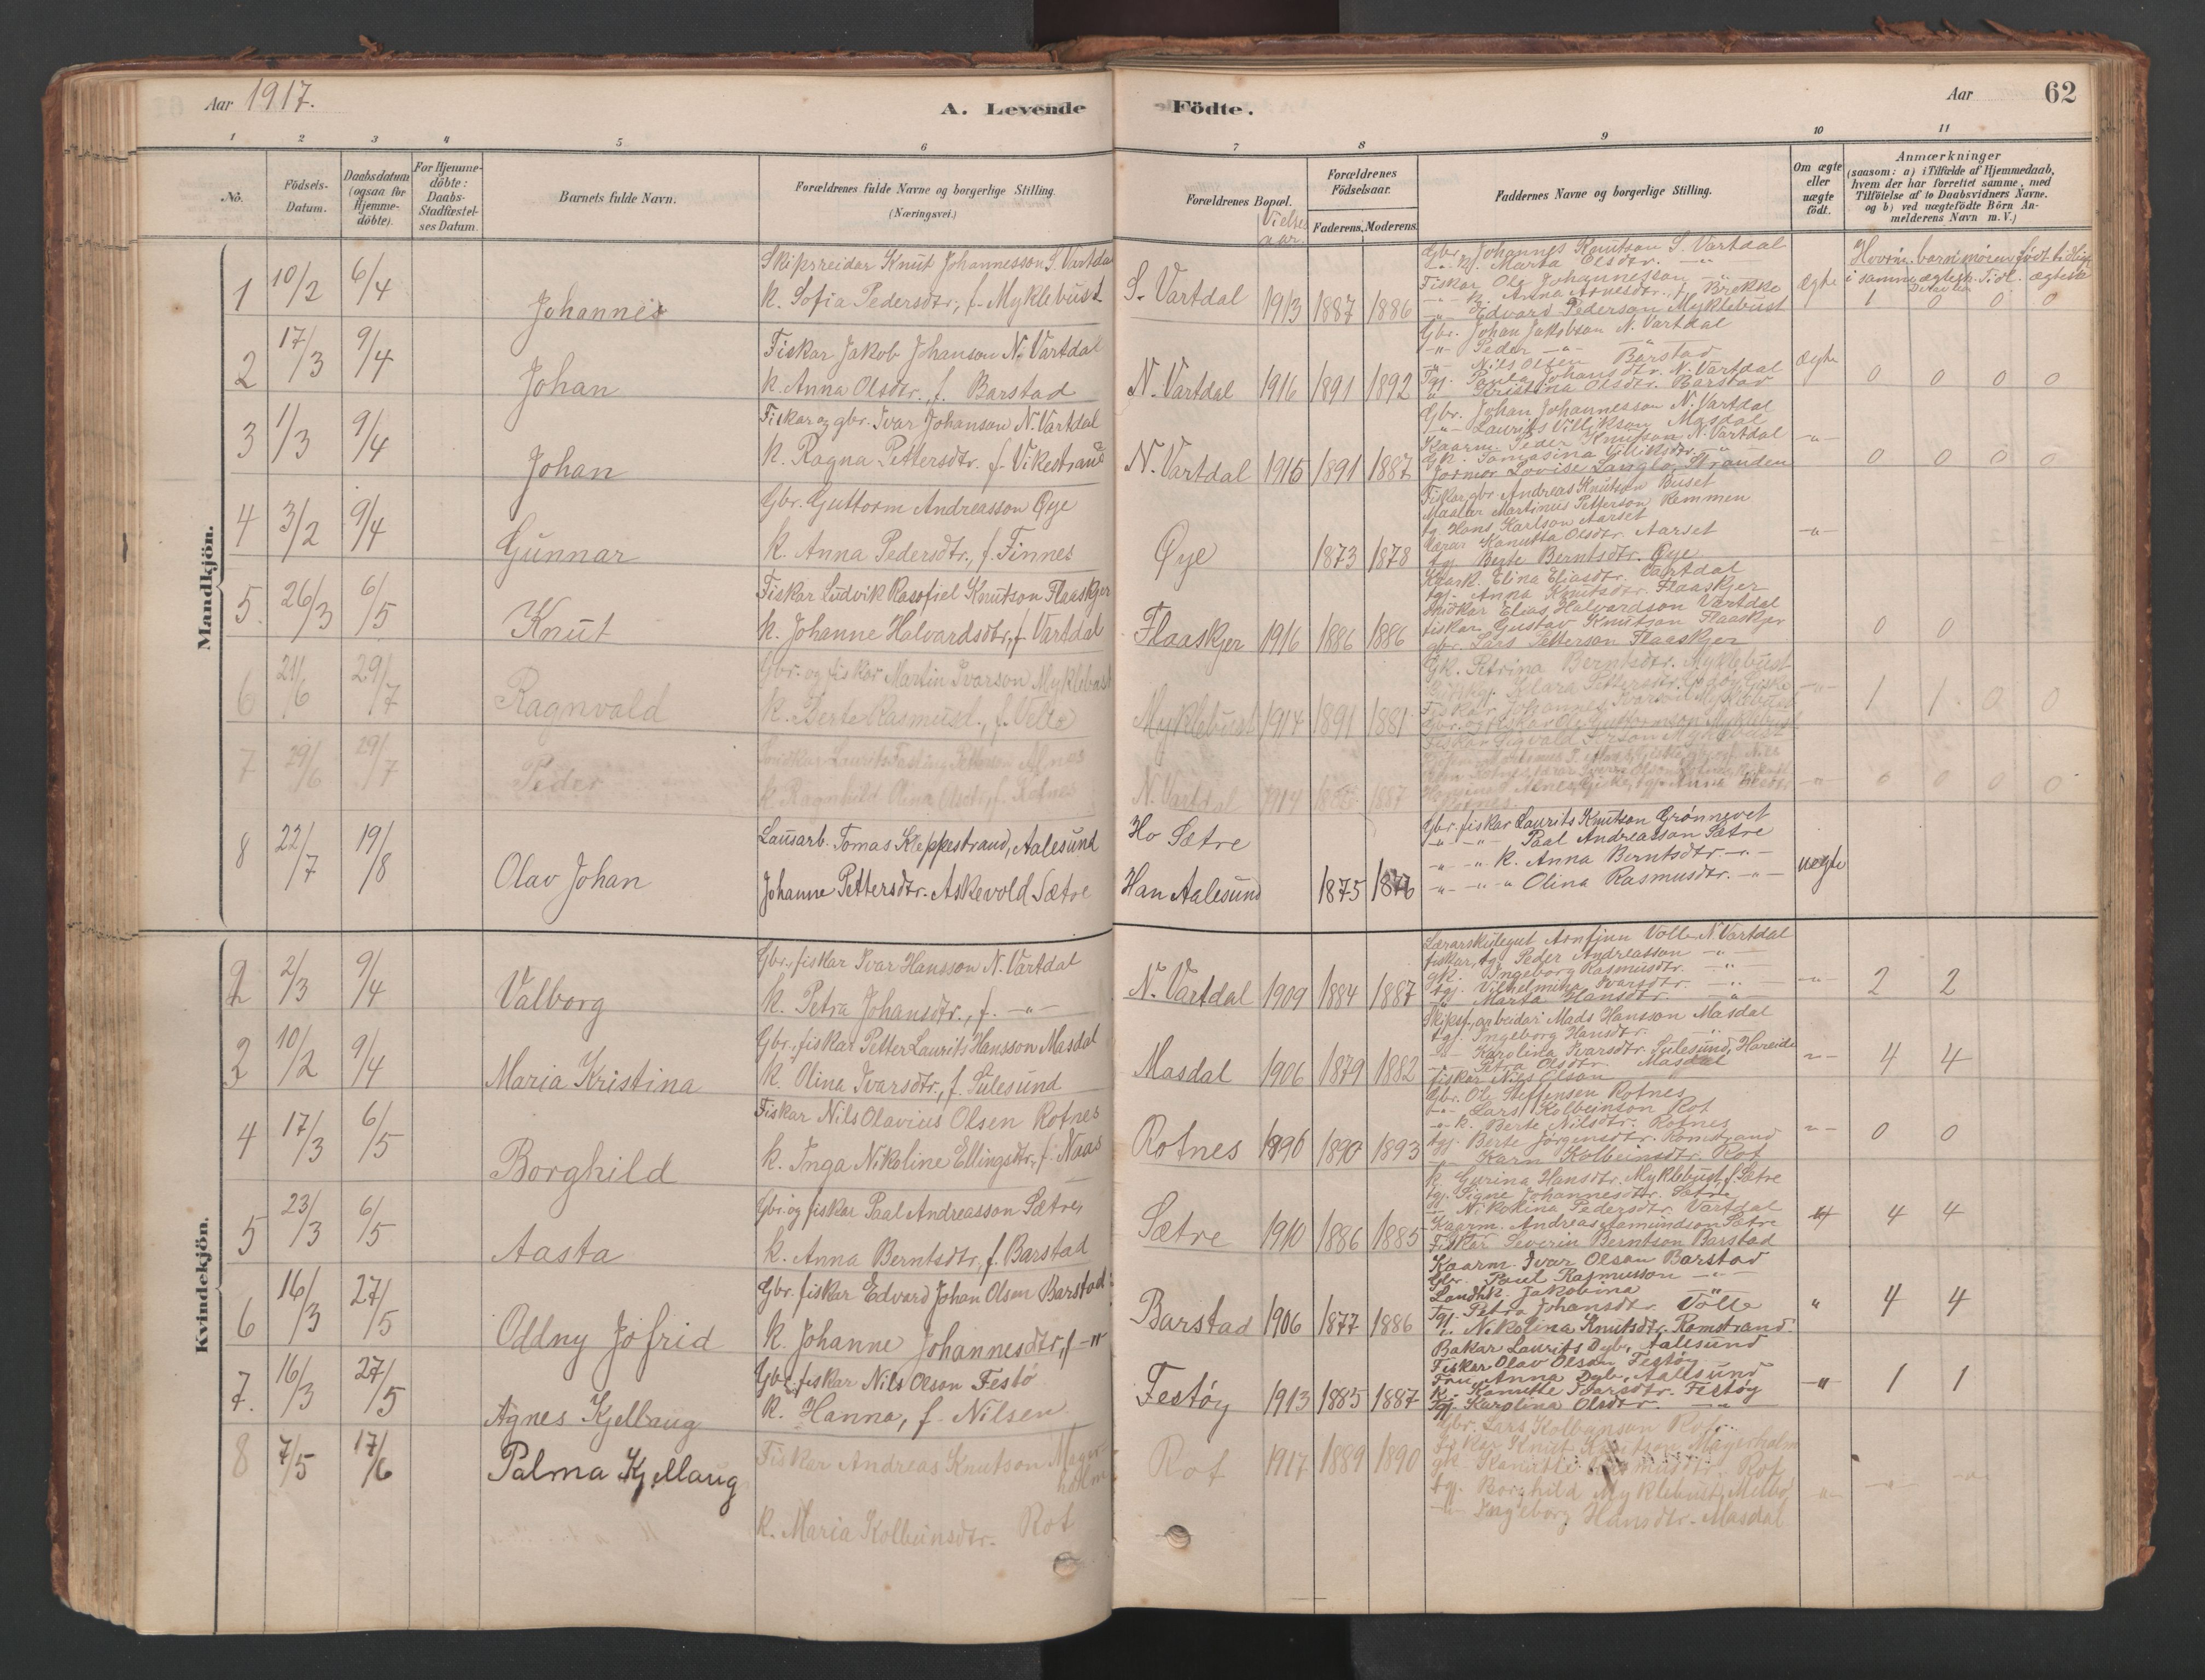 Aar 1917.
A. Levende Födte.
Aar
62
1 2 3 4 5 6 7 8 9 10 11
No.
Födsels-
Datum.
Daabsdatum
(ogsaa for
Hjemme-
döbte).
For Hjemme-
döbte:
Daabs-
Stadfæstel-
ses Datum.
Barnets fulde Navn.
Forældrenes fulde Navne og borgerlige Stilling.
(Næringsvei.)
Forældrenes Bopæl.
Vielses
aar.
Forældrenes
Födselsaar.
Faderens. Moderens.
Faddernes Navne og borgerlige Stilling.
Om ægte
eller
uægte
födt.
Anmærkninger
(saasom: a) i Tilfælde af Hjemmedaab,
hvem der har forrettet samme, med
Tilföielse af to Daabsvidners Navne.
og b) ved uægtefödte Börn An-
melderens Navn m. V.)
Mandkjön.
1 10/2 6/4 Johannes
Skipsreidar Knut Johannesson S. Vartdal
k. Sofia Pedersdtr., f. Myklebust
S. Vartdal 1913 1887 1886
Gbr. Johannes Knutson S. Vartdal
Marta Olsdtr. -"-
Fiskar Ole Johannesson -"-
-"- k. Anna Arnesdtr., f. Brekke
-"- Edvard Pederson Myklebust
ægte
Hvorm. barn moren födt tidligere
i samme ægtesk. Tidl. ægtesk.
1 0 0 0
2 17/3 9/4 Johan
Fiskar Jakob Johanson N. Vartdal
k. Anna Olsdtr., f. Barstad
N. Vartdal 1916 1891 1892
Gbr. Johan Jakobson N. Vartdal
-"- Peder -"- -"-
-"- Nils Olsen Barstad
Tgj. Paula Johansdtr. N. Vartdal
" Kristina Olsdtr. Barstad
ægte
0 0 0 0
3 1/3 9/4 Johan
Fiskar og gbr. Ivar Johanson N. Vartdal
k. Ragna Pettersdtr. f. Vikestrand
N. Vartdal 1915 1891 1887
Gbr. Johan Johannesson N. Vartdal
-"- Laurits Villikson Masdal
Kaarm. Peder Knutson N. Vartdal
Gk. Tomasina Villiksdtr. -"-
Jormor Lovise Langlo, Stranden
-"-
0 0 0 0
4 3/2 9/4 Gunnar
Gbr. Guttorm Andreasson Øye
k. Anna Pedersdtr., f. Finnes
Øye 1873 1878
Fiskar, gbr. Andreas Knutson Buset
Maalar Martinus Petterson Remmen
tg. Hans Karlson Aarset
Lærar Kanutta Olsdtr. Aarset
tgj. Berte Berntsdtr. Øye
-"-
5. 26/3 6/5 Knut
Fiskar Ludvik Rasofiel Knutson Flaaskjer
k. Johanne Halvardsdtr., f. Vartdal
Flaaskjer 1916 1886 1886
Kaark. Elina Eliasdtr. Vartdal
tgj. Anna Knutsdtr. Flaaskjer
Snidkar Elias Halvardson Vartdal
fiskar Gustav Knutson Flaaskjer
gbr. Lars Petterson Flaaskjer
0 0
6 21/6 29/7 Ragnvald
Gbr. og fiskar Martin Ivarson Myklebust
k. Berte Rasmusd., f. Velle
Myklebust 1914 1891 1881
Gk. Petrina Berntsdtr. Myklebust
Fiskar Johannes Ivarson Myklebust
Gbr. og fiskar Ole Guttormson Myklebust
Fiskar Sigvald Iverson Myklebust
-"-
1 1 0 0
7 29/6 29/7 Peder
Snidkar Laurits Fasting Petterson Alnes
k. Ragnhild Olina Olsdtr., f. Rotnes
N. Vartdal 1914 1887
"
0 0 0 0
8 22/7 19/8 Olav Johan
Lausarb. Tomas Kleppestrand, Aalesund
Johanne Pettersdtr. Askevold Sætre
Ho Sætre
Han Aalesund
1875 1876
Gbr. fiskar Laurits Knutson Grønnevet
-"- -"- Paal Andreasson Sætre
-"- -"- k. Anna Berntsdtr. -"-
-"- -"- " Olina Rasmusdtr. -"-
uægte
Kvindekjön.
1 2/3 9/4 Valborg
Gbr., fiskar Ivar Hansson N. Vartdal
k. Petra Johansdtr., f. -"-
N. Vartdal 1909 1884 1887
Lærarskulegut Arnfinn Volle N. Vartdal
fiskar, tg. Peder Andreasson -"-
gk. Ingeborg Rasmusdtr. -"-
tgj. Vilhelmina Ivarsdtr. -"-
" Marta Hansdtr. -"-
-"-
2 2
2 10/2 9/4 Maria Kristina
Gbr., fiskar Petter Laurits Hansson Masdal
k. Olina Ivarsdtr., f. Sulesund
Masdal 1906 1879 1882
Skipsf. arbeidar Mads Hansson Masdal
tgj. Ingeborg Hansdtr. -"-
-"- Karolina Ivarsdtr. Sulesund, Hareide
-"- Petra Olsdtr. Masdal
fiskar Nils Olson
-"-
4 4
4 17/3 6/5 Borghild
Fiskar Nils Olavius Olsen Rotnes
k. Inga Nikoline Ellingsdtr., f. Naas
Rotnes 1896 1890 1893
Gbr. Ole Steffensen Rotnes
-"- Lars Kolbeinson Rot
-"- k. Berte Nilsdtr. Rotnes
tgj. Berte Jørgensdtr. Romstrand
-"- Karn Kolbeinsdtr. Rot
-"-
0 0
5 23/3 6/5 Aasta
Gbr. og fiskar Paal Andreasson Sætre
k. Anna Berntsdtr., f. Barstad
Sætre 1910 1886 1885
k. Gurina Hansdtr. Myklebust, f. Sætre
tgj. Signe Johannesdtr. Sætre
-"- Nikolina Pedersdtr. Vartdal
Kaarm. Andreas Aamundson Sætre
Fiskar Severin Berntson Barstad
4 4
6 16/3 27/5 Oddny Jofrid
Gbr. fiskar Edvard Johan Olson Barstad
k. Johanne Johannesdtr, f. -"-
Barstad 1906 1877 1886
Kaarm. Ivar Olson Barstad
Gbr. Paul Rasmusson -"-
Landhk. Jakobina -"-
Tgj. Petra Johansdtr. Volle
" Nikolina Knutsdtr. Romstrand
"
4 4
7. 16/3 27/5 Agnes Kjellaug
Gbr., fiskar Nils Olson Festö
k. Hanna, f. Nilsen
Festøy 1913 1885 1887
Bakar Laurits Dyb, Aalesund
Fiskar Olav Olson Festöy
Fru Anna Dyb, Aalesund
k. Kanutte Ivarsdtr. Festöy
Tgj. Karolina Olsdtr. -"-
-"-
1 1
8 7/5 17/6 Palma Kjellaug
Fiskar Andreas Knutson Mager-
holm
k. Maria Kolbeinsdtr. Rot
Rot 1917 1889 1890
Gbr. Lars Kolbeinson Rot
Fiskar Knut Knutson Magerholm
gk. Kanutte Rasmusdtr. Rot
tgj. Borghild Myklebust
-"- Ingeborg Hansdtr. Masdal
-"- -"- -"-